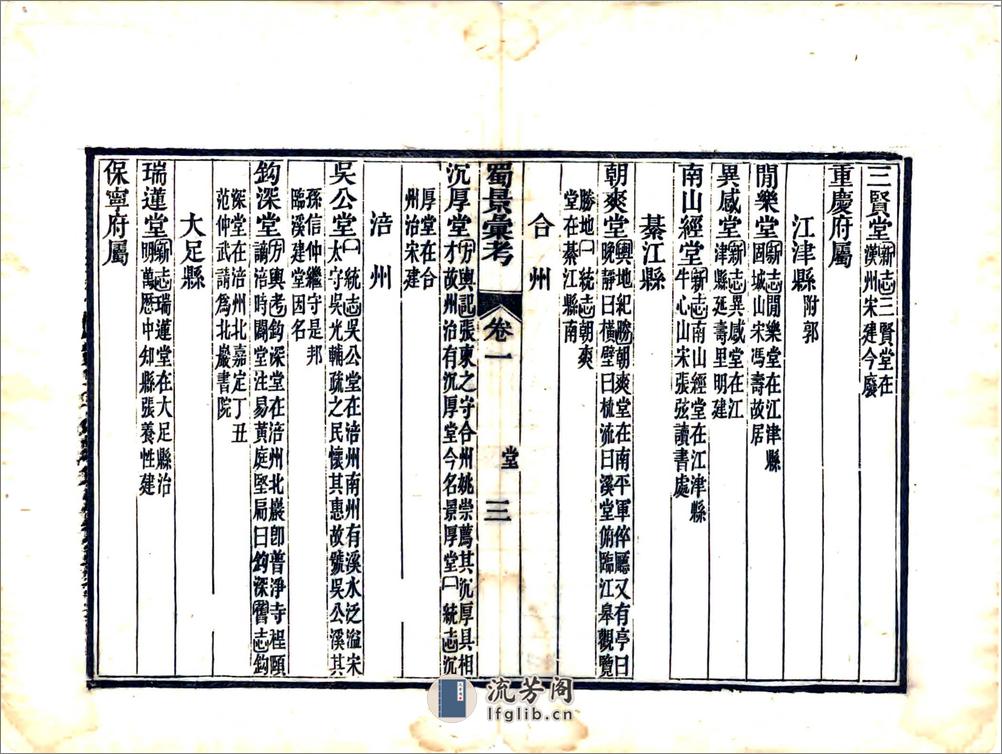 三賢堂新志三賢堂在
漢州宋建今廢
重慶府屬
江津縣附郭
閒樂堂新志閒樂堂在江津縣
固城山宋馮壽故居
異感堂新志異感堂在江
津縣延壽里明建
南山經堂新志南山經堂在江津縣
牛心山宋張弦讀書處
綦江縣
朝爽堂輿地紀勝朝爽堂在南平軍倅廳又有亭曰
晚靜曰橫壁曰梳流曰溪堂俯臨江皋觀覽
勝地一統志朝爽
堂在綦江縣南
合州
蜀景彙考
卷一
堂
三
沉厚堂方輿記張柬之守合州姚崇薦其沉厚具相
才故州治有沉厚堂今名景厚堂一統志沉
厚堂在合
州治宋建
涪州
吳公堂一統志吳公堂在涪州南州有溪水泛溢宋
太守吳光輔疏之民懷其惠故號吳公溪其
孫信仲繼守是邦
臨溪建堂因名
鈎深堂方輿考鈎深堂在涪州北巖卽普淨寺程頤
謫涪時闢堂注易黃庭堅扁曰鈎深舊志鈎
深堂在涪州北嘉定丁丑
范仲武請爲北巖書院
大足縣
瑞蓮堂新志瑞蓮堂在大足縣治
明萬歷中知縣張養性建
保寧府屬
流芳阁
lfglib.cn